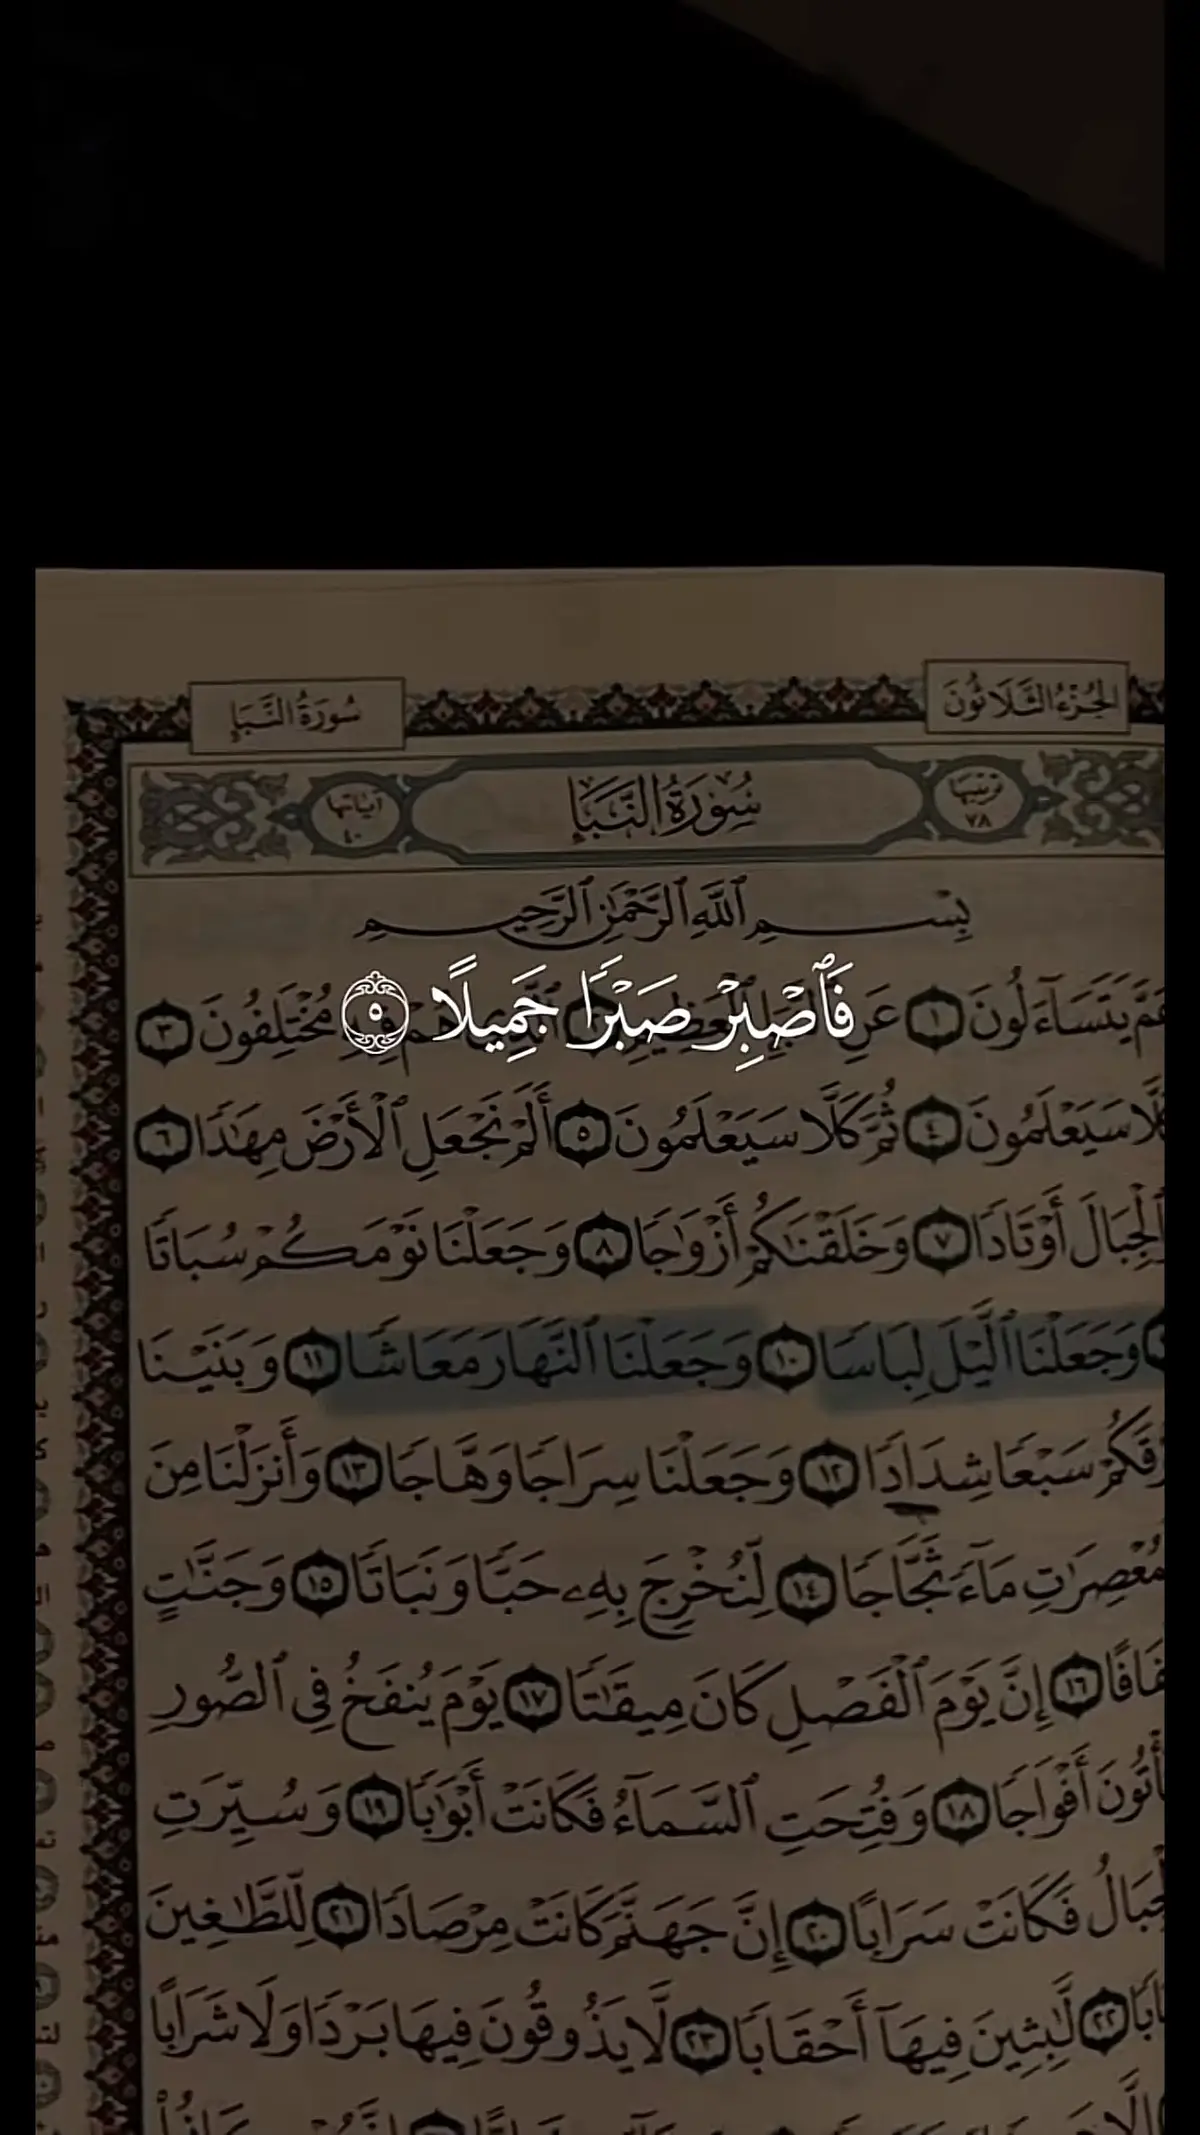 الجُزْءُ الثَّلَاثُونَ
سُورَةُ النَّبَإِ
ترتيبها
٧٨
سُورَةُ النَّبَإِ
آياتها
٤٠
بِسْمِ ٱللَّهِ ٱلرَّحْمَٰنِ ٱلرَّحِيمِ
فَٱصْبِرْ صَبْرًا جَمِيلًا ٥
عَمَّ يَتَسَآءَلُونَ ١ عَنِ مُخْتَلِفُونَ ٣
كَلَّا سَيَعْلَمُونَ ٤ ثُمَّ كَلَّا سَيَعْلَمُونَ ٥ أَلَمْ نَجْعَلِ ٱلْأَرْضَ مِهَٰدًا ٦
ٱلْجِبَالَ أَوْتَادًا ٧ وَخَلَقْنَٰكُمْ أَزْوَٰجًا ٨ وَجَعَلْنَا نَوْمَكُمْ سُبَاتًا
وَجَعَلْنَا ٱلَّيْلَ لِبَاسًا ١٠ وَجَعَلْنَا ٱلنَّهَارَ مَعَاشًا ١١ وَبَنَيْنَا
سَبْعًا شِدَادًا ١٢ وَجَعَلْنَا سِرَاجًا وَهَّاجًا ١٣ وَأَنزَلْنَا مِنَ
مَآءً ثَجَّاجًا ١٤ لِّنُخْرِجَ بِهِۦ حَبًّا وَنَبَاتًا ١٥ وَجَنَّٰتٍ
١٦ إِنَّ يَوْمَ ٱلْفَصْلِ كَانَ مِيقَٰتًا ١٧ يَوْمَ يُنفَخُ فِى ٱلصُّورِ
أَفْوَاجًا ١٨ وَفُتِحَتِ ٱلسَّمَآءُ فَكَانَتْ أَبْوَٰبًا ١٩ وَسُيِّرَتِ
فَكَانَتْ سَرَابًا ٢٠ إِنَّ جَهَنَّمَ كَانَتْ مِرْصَادًا ٢١ لِّلطَّٰغِينَ
٢٢ لَّٰبِثِينَ فِيهَآ أَحْقَابًا ٢٣ لَّا يَذُوقُونَ فِيهَا بَرْدًا وَلَا شَرَابًا